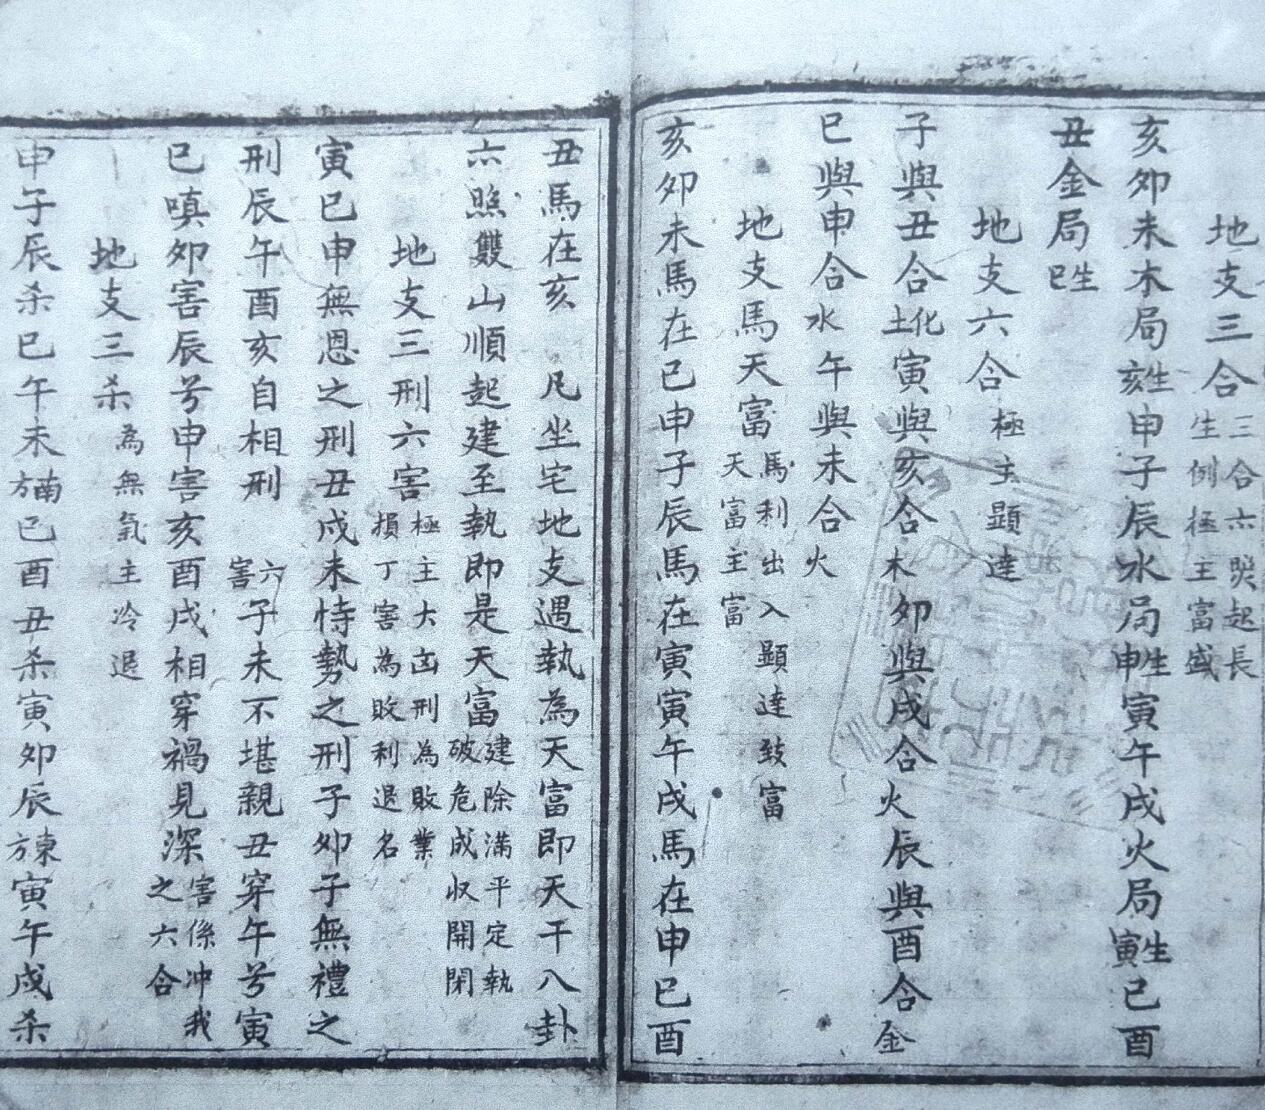 地支三合 三合六照起長生例極主富盛
亥卯未木局生亥申子辰水局生申寅午戌火局生寅巳酉
丑金局生巳
地支六合 極主顯達
子與丑合化土寅與亥合木卯與戌合火辰與酉合金
巳與申合水午與未合火
地支馬天富 馬利出入顯達致富天富主富
亥卯未馬在巳申子辰馬在寅寅午戌馬在申巳酉
丑馬在亥 凡坐宅地支遇執為天富即天干八卦
六照雙山順起建至執即是天富建除滿平定執破危成収開閉
地支三刑六害極主大凶刑為敗業損丁害為敗利退名
寅巳申無恩之刑丑戌未恃勢之刑子卯子無禮之
刑辰午酉亥自相刑 六害子未不堪親丑穿午兮寅
巳嗔卯害辰兮申害亥酉戌相穿禍見深害係冲我之六合
地支三杀為無氣主冷退
申子辰杀巳午未南方巳酉丑杀寅卯辰東方寅午戌杀